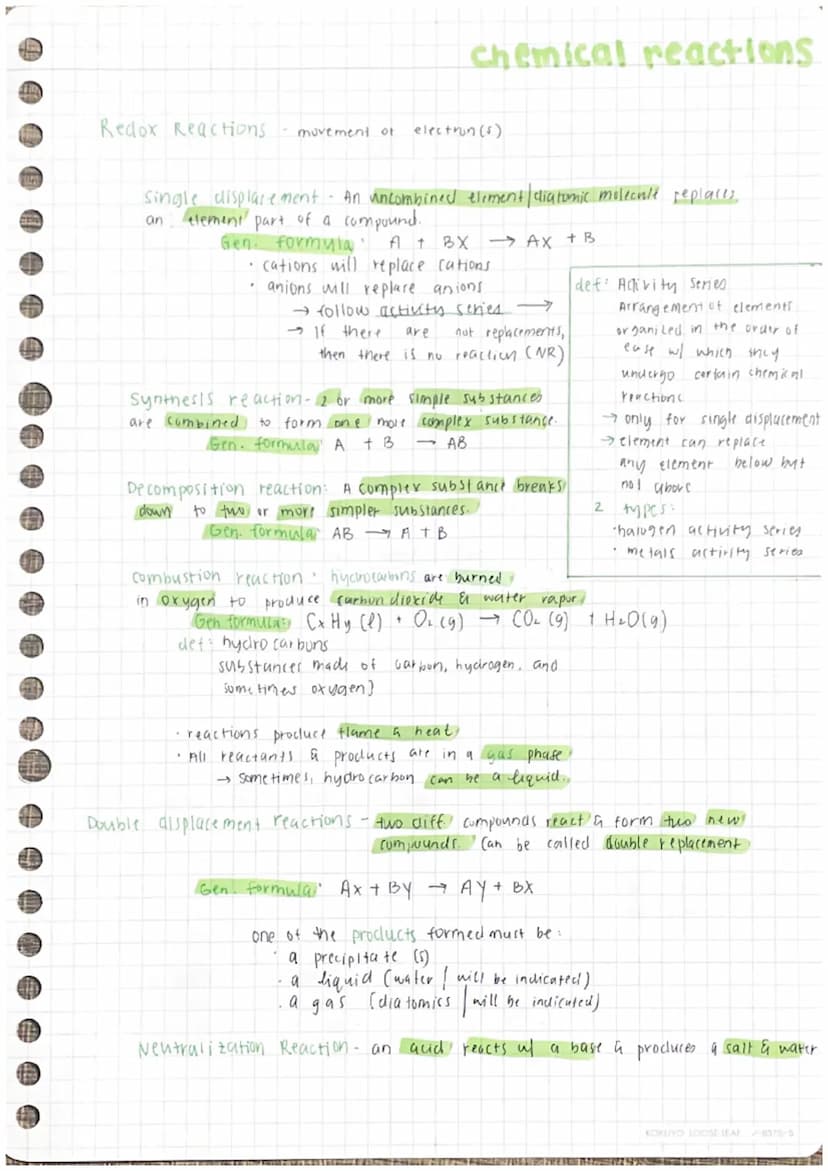 chemical reactions
Redox Reactions - movement of electron(s)
Single displacement - An uncombined element/diatomic molecule replaces
an element part of a compound.
Gen. formula: A + BX → AX + B
• cations will replace cations
• anions will replace anions
→ follow activity series →
→ If there are not replacements,
then there is no reaction (NR)
def: Activity Series
Arrangement of elements
organized in the order of
ease w/ which they
undergo certain chemical
reactions
→ only for single displacement
→ element can replace
any element below but
not above
2 types:
• halogen activity series
• metals activity series
Synthesis reaction - 2 or more simple substances
are combined to form one more complex substance.
Gen. formula: A + B → AB
Decomposition reaction: A complex substance breaks
down to two or more simpler substances.
Gen. formula: AB → A + B
Combustion reaction: hydrocarbons are burned
in oxygen to produce carbon dioxide & water vapor
Gen formula: CxHy (l) + O₂ (g) → CO₂ (g) + H₂O(g)
def: hydrocarbons
substances made of carbon, hydrogen, and
sometimes oxygen]
• reactions produce flame & heat
• All reactants & products are in a gas phase
→ sometimes, hydrocarbon can be a liquid.
Double displacement reactions - two diff compounds react & form two new
compounds. Can be called double replacement
Gen. formula: Ax + BY → AY + BX
one of the products formed must be:
• a precipitate (s)
• a liquid (water / will be indicated)
• a gas (diatomics / will be indicated)
Neutralization Reaction - an acid reacts w/ a base & produces a salt & water
KOKUYO LOOSE-LEAF